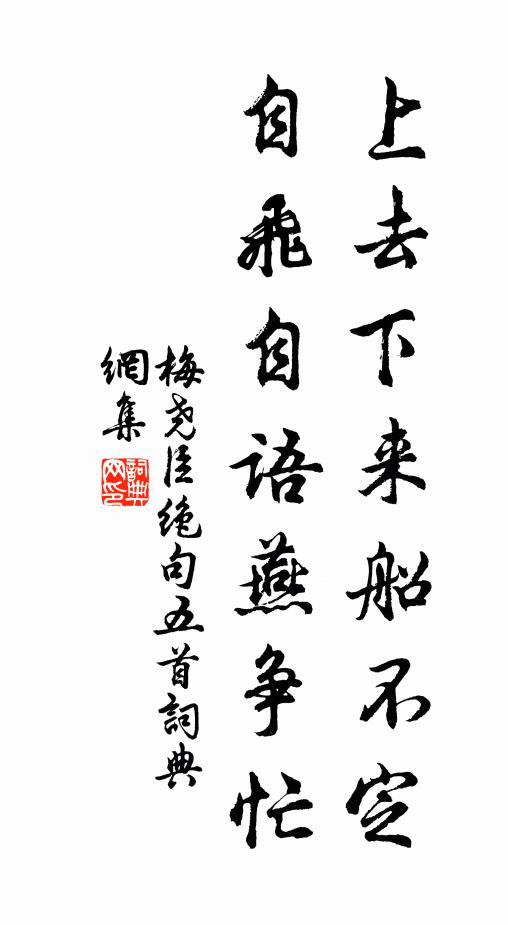 上去下来船不定
自飛自語燕争忙
梅尧臣绝句五首詞典
網集
詞典
网印